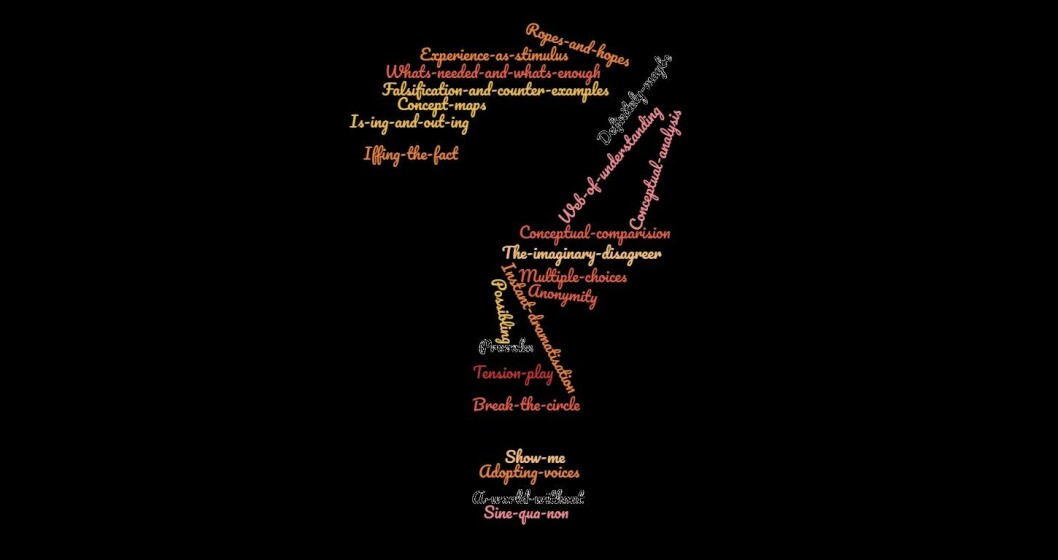 Ropes-and-hopes
Experience-as-stimulus
Whats-needed-and-whats-enough
Falsification-and-counter-examples
Concept-maps
Is-ing-and-out-ing
Iffing-the-fact
Definitely-maybe
Web-of-understanding
Conceptual-analysis
Conceptual-comparision
The-imaginary-disagreer
Multiple-choices
Anonymity
Instant-dramatisation
Possibling
Tension-play
Break-the-circle
Show-me
Adopting-voices
A-world-without
Sine-qua-non